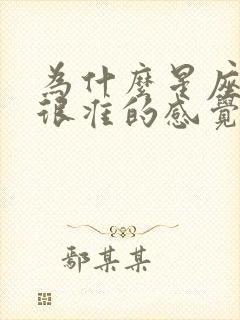 為什麼是座
很准的感覺
鄢某某